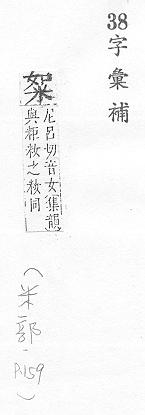 38字彙補
尼呂切音女集韻
與粔籹之籹同
(米部.P.159)